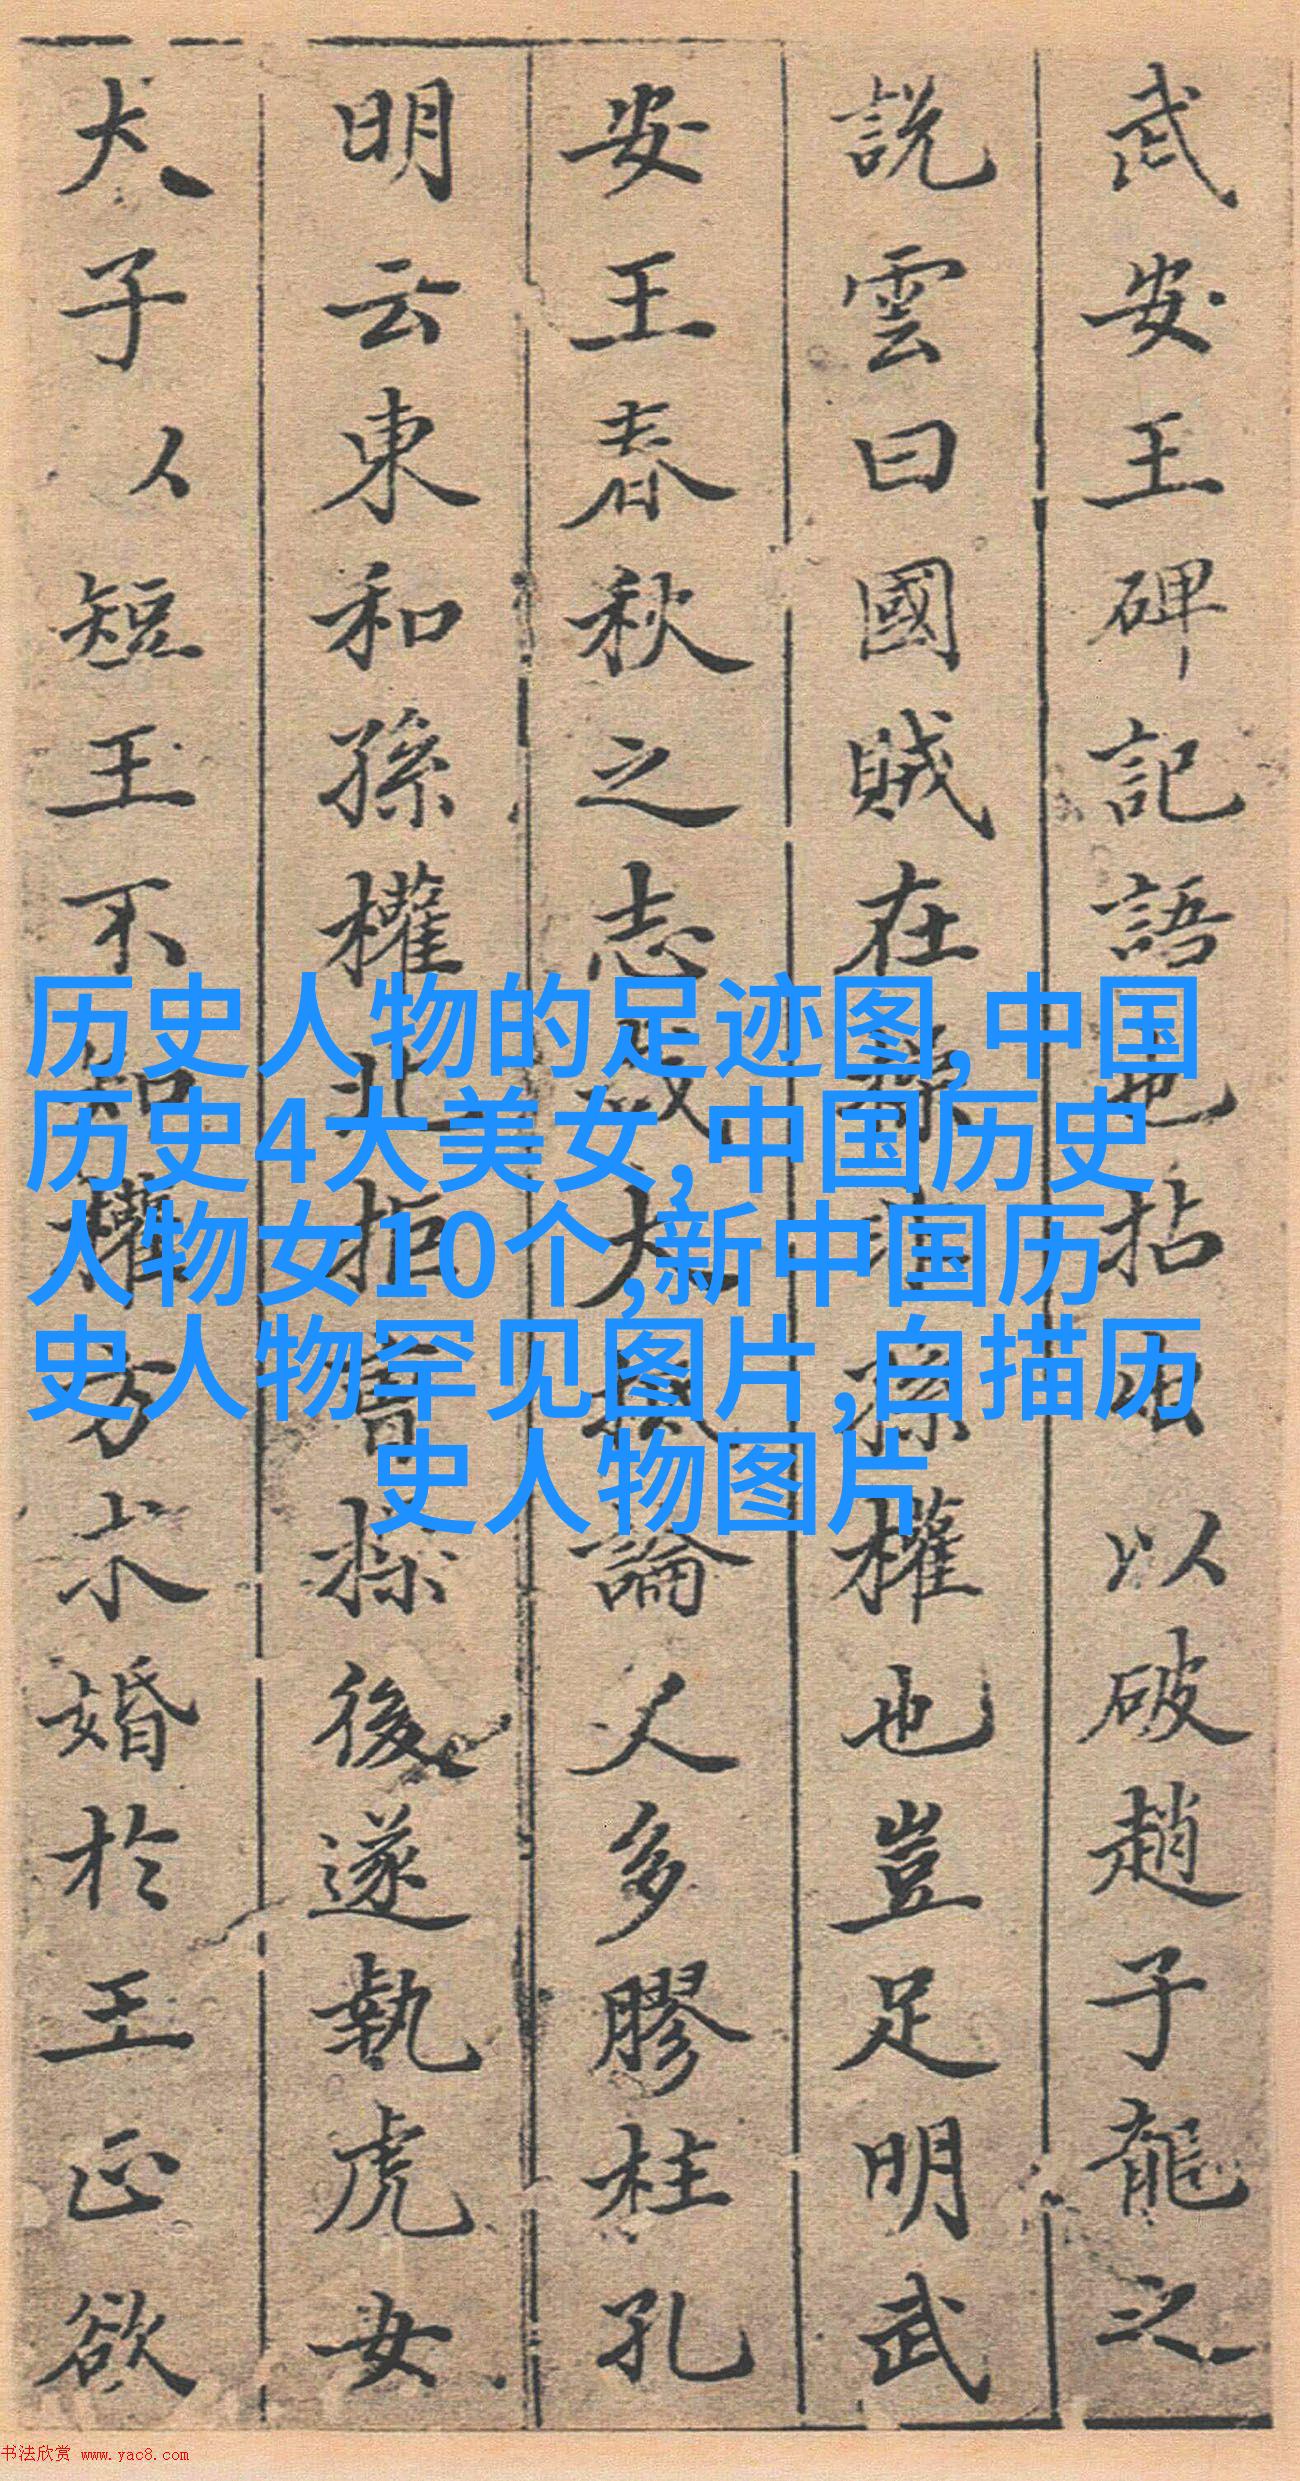 武安王碑記語也拈出以破趙子龍之
説雲曰國賊在操非孫權也豈足明武
安王春秋之志哉大抵論人多膠柱孔
明云東和孫權北拒曹操後遂執虎女
犬子以短王不知權方求婚於王正欲
历史人物的足迹图,中国
历史4大美女,中国历史
人物女10个,新中国历
史人物罕见图片,白描历
史人物图片
书法欣赏 www.yac8.com